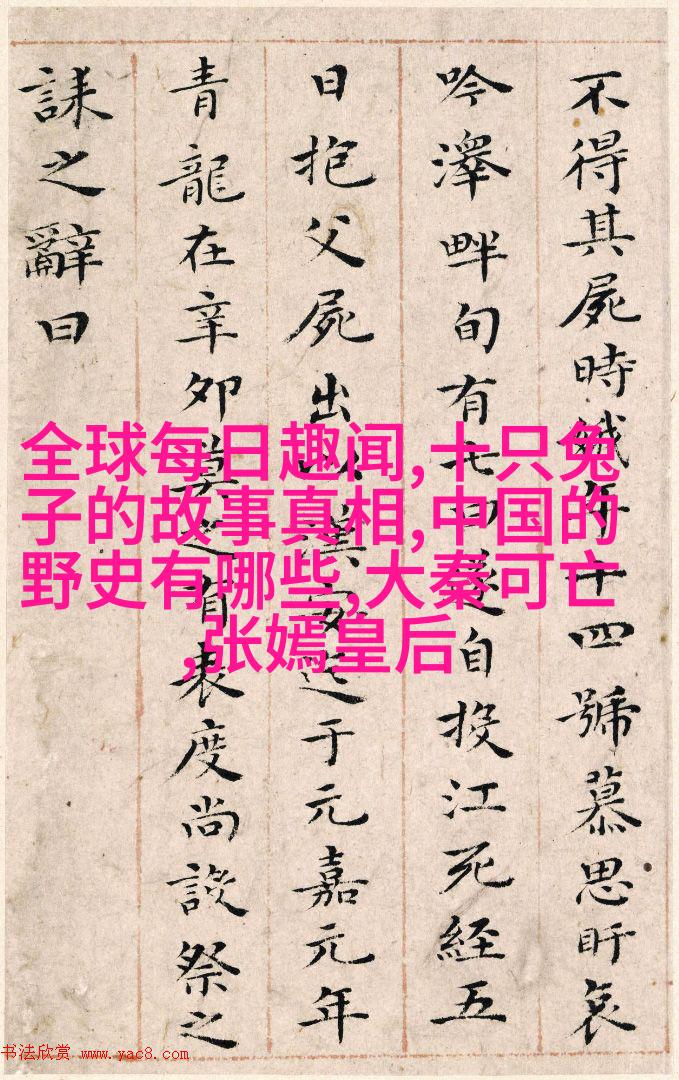 不得其屍時娥年十四號慕思盱哀
吟澤畔旬有七日遂自投江死經五
日抱父屍出以漢安迄于元嘉元年
青龍在辛卯莫之有表度尚設祭之
誄之辭曰
全球每日趣闻,十只兔
子的故事真相,中国的
野史有哪些,大秦可亡
,张嫣皇后
书法欣赏 www.yac8.com